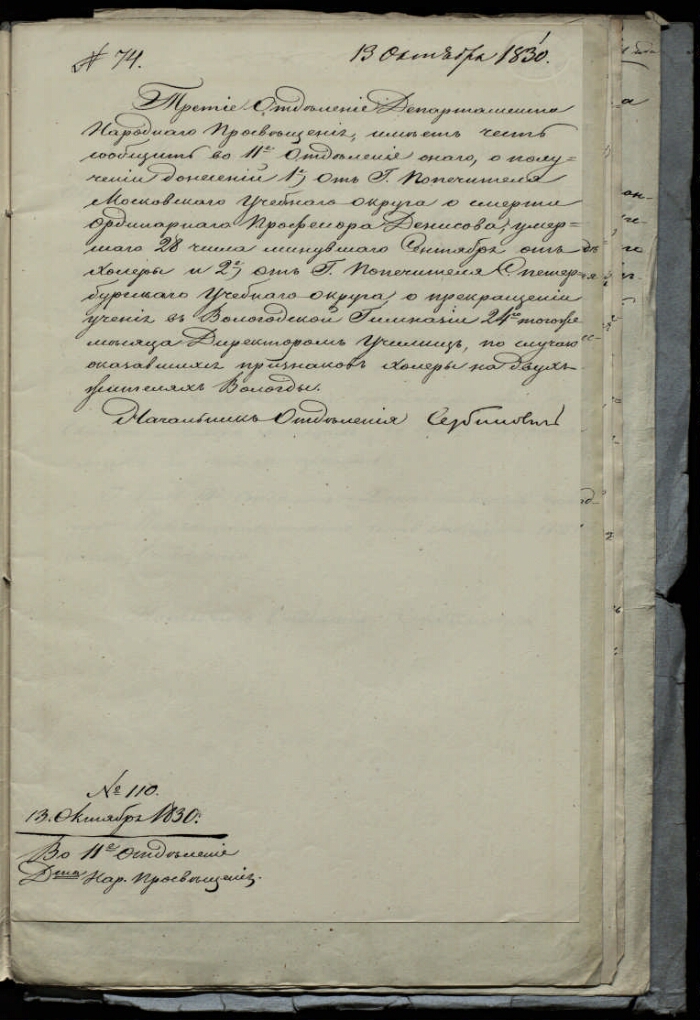 № 74.
13 Октября 1830.
Третіе Отдѣленіе Департамента
Народнаго Просвѣщенія, имѣетъ честь
сообщить во 11е Отдѣленіе онаго, о полу-
ченіи донесеній 1е) отъ Г. Попечителя
Московскаго Учебнаго Округа о смерти
Ординарнаго Профессора Денисова, умер-
шаго 28 числа минувшаго Сентября отъ
холеры и 2е) отъ Г. Попечителя С. Петер-
бурскаго Учебнаго округа, о прекращеніи
ученія въ Вологодской Гимназіи 24го тогоже
мѣсяца Директоромъ Училищъ, по случаю
оказавшихся признаковъ холеры на двухъ
жителяхъ Вологды.
Начальникъ Отдѣленія Сербиновичъ
№ 110.
13. Октября 1830.
Во 11е Отдѣленіе
Дта Нар. Просвѣщенія.